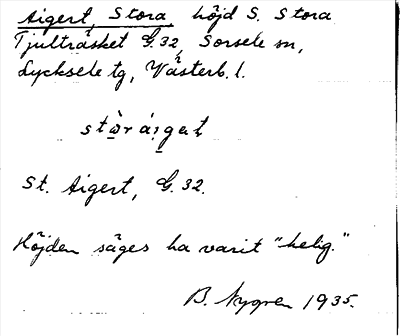 Aigert, Stora, höjd S. Stora
Tjulträsket G.32, Sorsele sn,
Lycksele tg, Västerb. l.
stọ̀ráigert
St. Aigert, G.32.
Höjden säges ha varit "helig."
B. Nygren 1935.